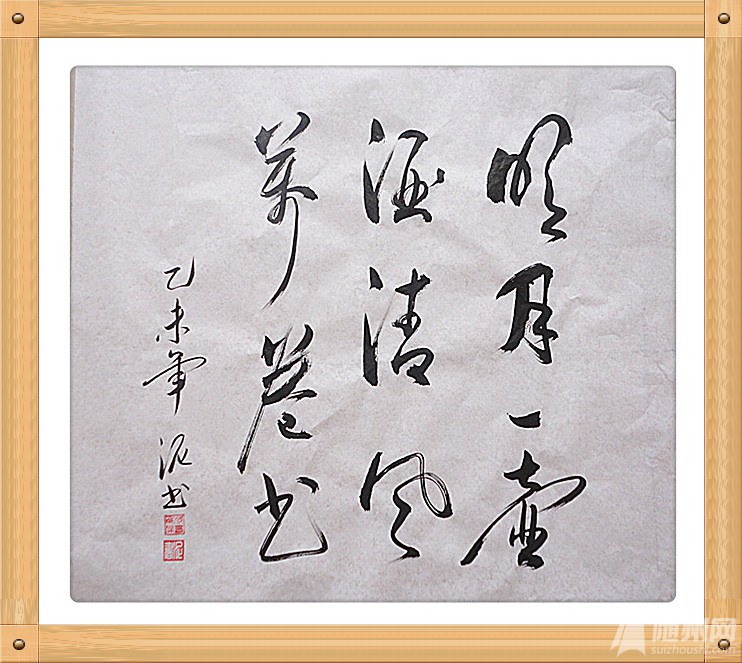 明月一壶
酒清风
万卷书
乙未年
泥书
随州网
suizhoush.com